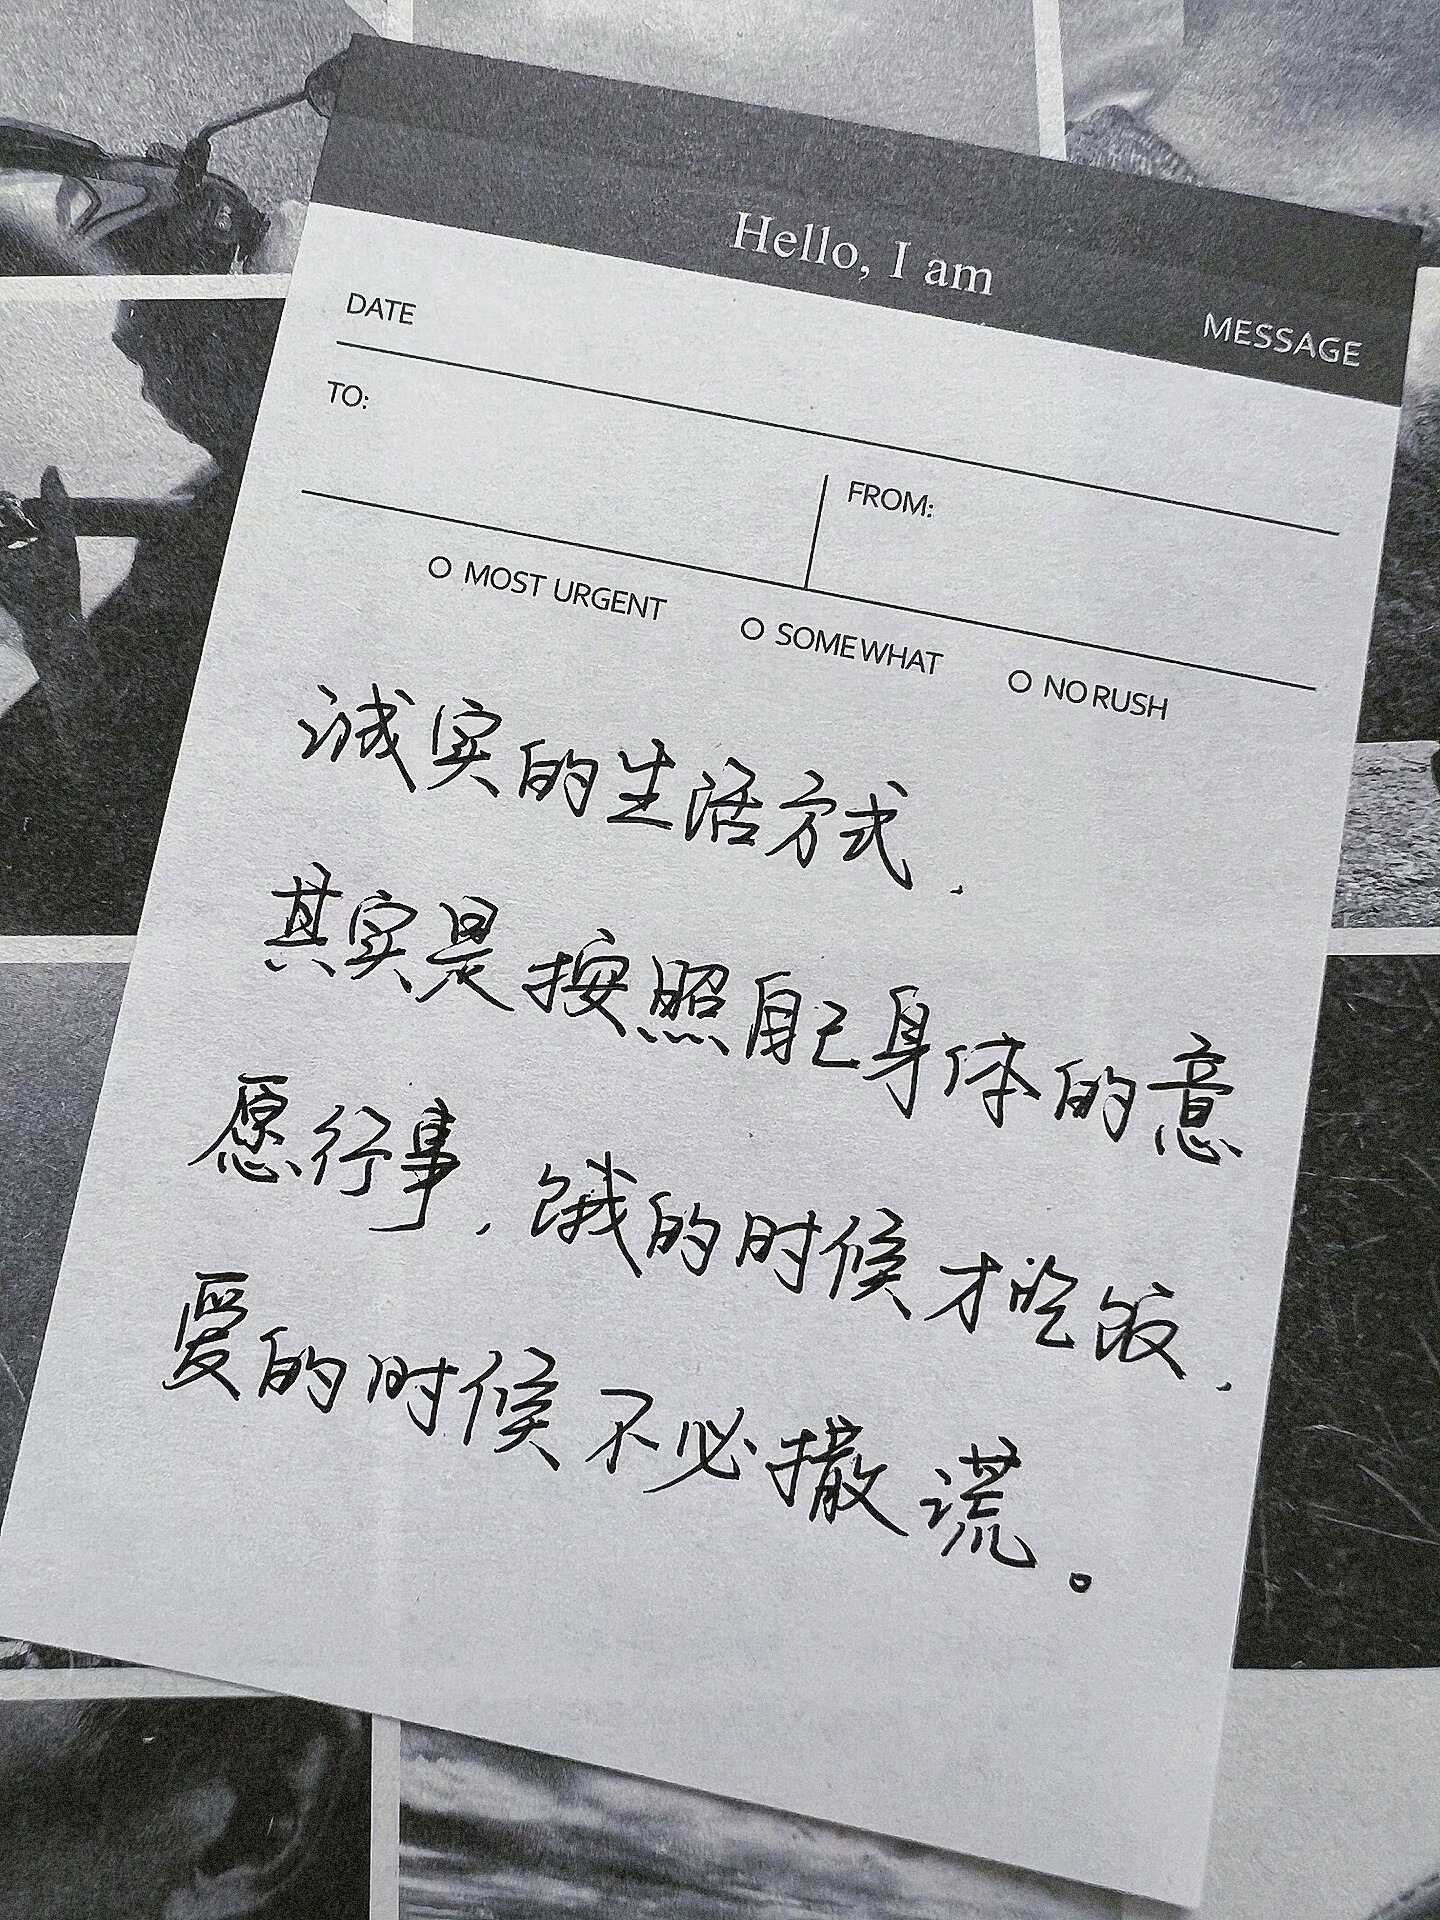 Hello, I am
MESSAGE
DATE
TO:
FROM:
MOST URGENT
SOMEWHAT
NO RUSH
诚实的生活方式,
其实是按照自己身体的意
愿行事,饿的时候才吃饭,
爱的时候不必撒谎。